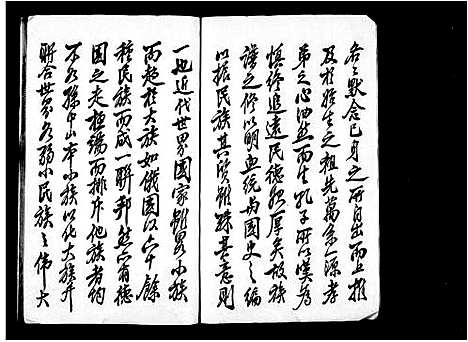 各々默念已身之所自出而上推
及於始生之祖先萬系一源孝
弟之心油然而生孔子所以嘆為
慎終追遠民德歸厚矣故族
譜之修以明血統為國史之編
以振民族其質雖殊其意則
一也近代世界國家雖有小族
而起於大族如俄國以六十餘
種民族而成一聯邦然亦有德
國之走極端而排斥他族者的
不如孫中山本小族以化大族並
聯合世界各弱小民族之偉大